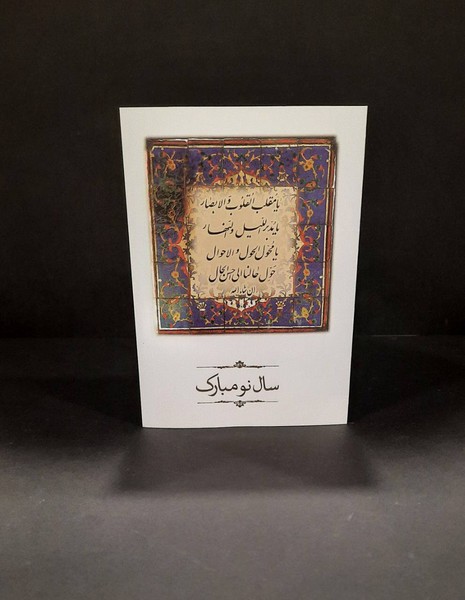 یا مقلب القلوب و الابصار
یا مدبر اللیل و النهار
یا محول الحول و الاحوال
حول حالنا الی احسن الحال
ان شاء الله
سال نو مبارک